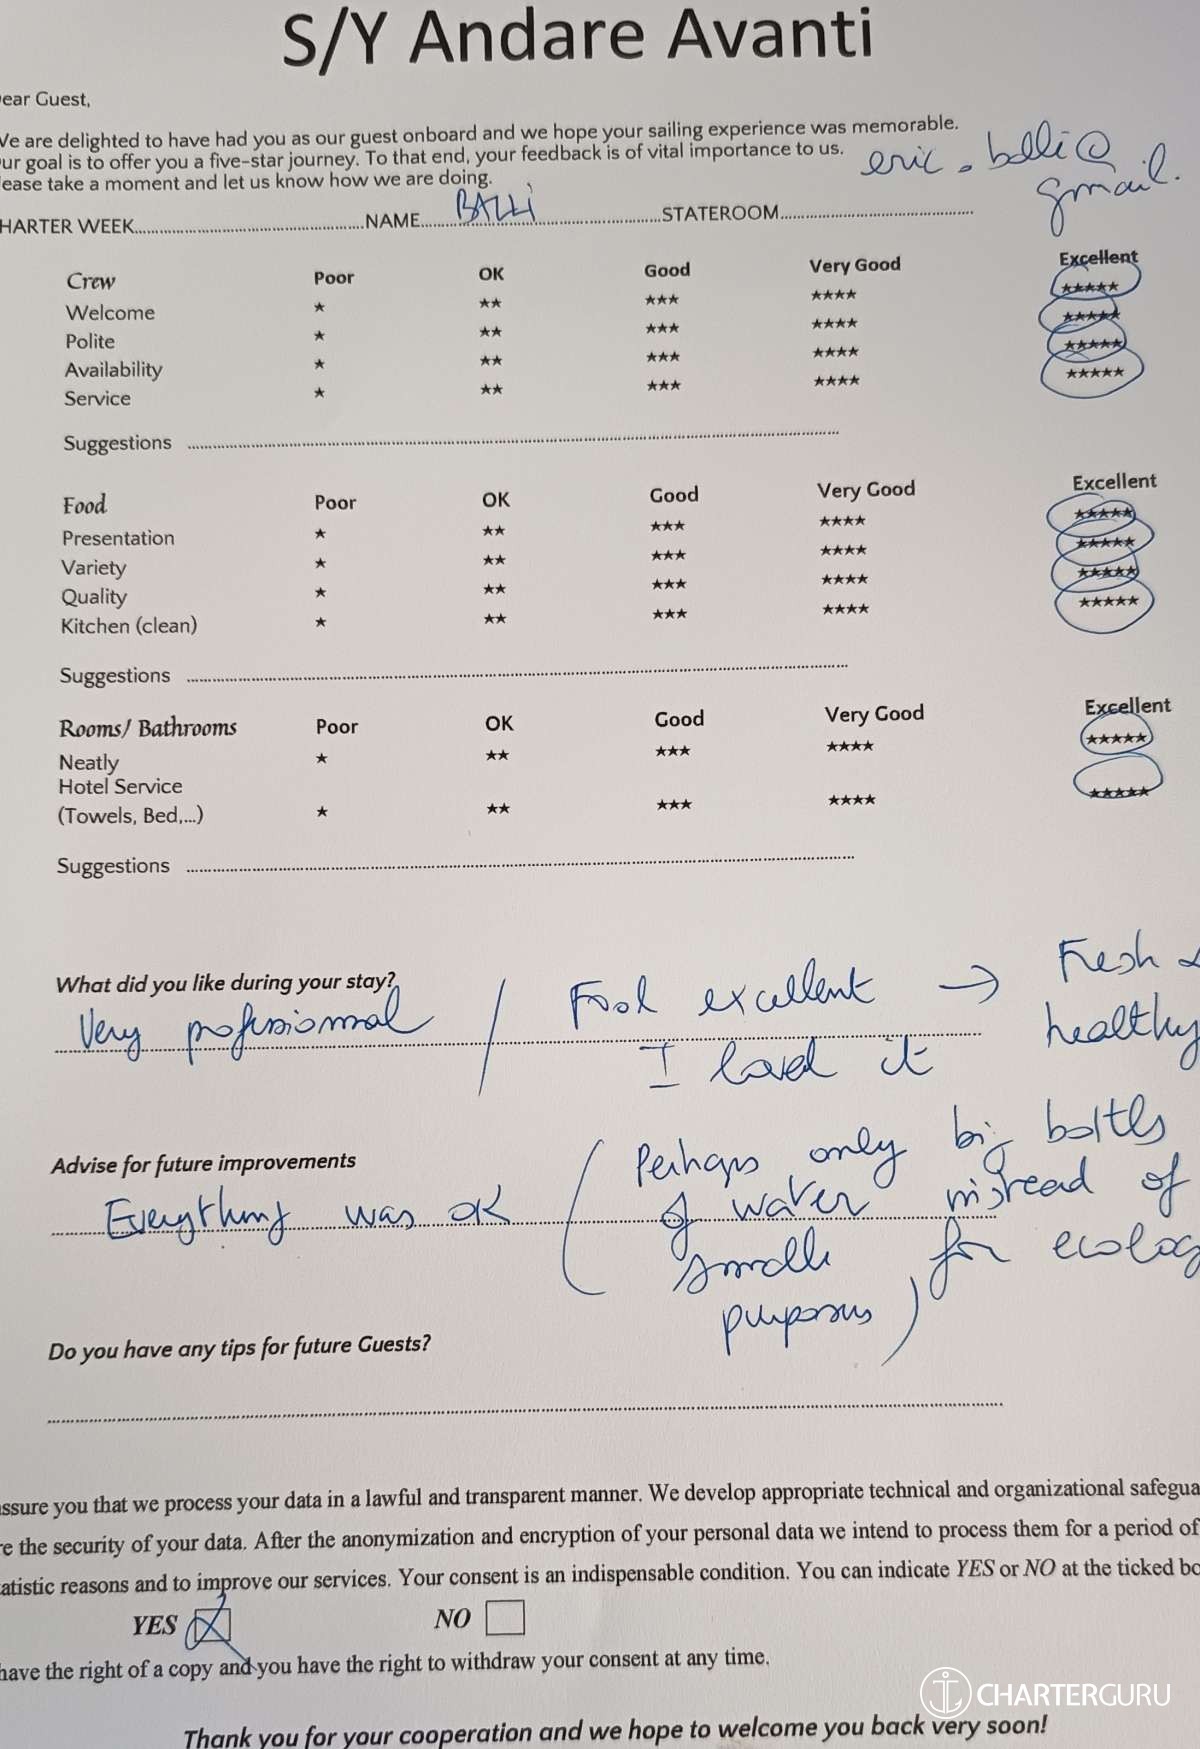 S/Y Andare Avanti
ear Guest,
We are delighted to have had you as our guest onboard and we hope your sailing experience was memorable.
ur goal is to offer you a five-star journey. To that end, your feedback is of vital importance to us.
lease take a moment and let us know how we are doing.
eric.balli@
gmail.
HARTER WEEK NAME BALLi STATEROOM
Crew Poor OK Good Very Good Excellent
Welcome ★ ★★ ★★★ ★★★★ ★★★★★
Polite ★ ★★ ★★★ ★★★★ ★★★★★
Availability ★ ★★ ★★★ ★★★★ ★★★★★
Service ★ ★★ ★★★ ★★★★ ★★★★★
Suggestions
Food Poor OK Good Very Good Excellent
Presentation ★ ★★ ★★★ ★★★★ ★★★★★
Variety ★ ★★ ★★★ ★★★★ ★★★★★
Quality ★ ★★ ★★★ ★★★★ ★★★★★
Kitchen (clean) ★ ★★ ★★★ ★★★★ ★★★★★
Suggestions
Rooms/ Bathrooms Poor OK Good Very Good Excellent
Neatly ★ ★★ ★★★ ★★★★ ★★★★★
Hotel Service
(Towels, Bed,...) ★ ★★ ★★★ ★★★★ ★★★★★
Suggestions
What did you like during your stay?
Very professionnal / Food excellent → Fresh &
I loved it healthy
Advise for future improvements
Everything was OK (Perhaps only big bottles
of water instead of
smalls for ecolog
purposes)
Do you have any tips for future Guests?
assure you that we process your data in a lawful and transparent manner. We develop appropriate technical and organizational safegua
re the security of your data. After the anonymization and encryption of your personal data we intend to process them for a period of
tatistic reasons and to improve our services. Your consent is an indispensable condition. You can indicate YES or NO at the ticked bo
YES NO
have the right of a copy and you have the right to withdraw your consent at any time.
CHARTERGURU
Thank you for your cooperation and we hope to welcome you back very soon!